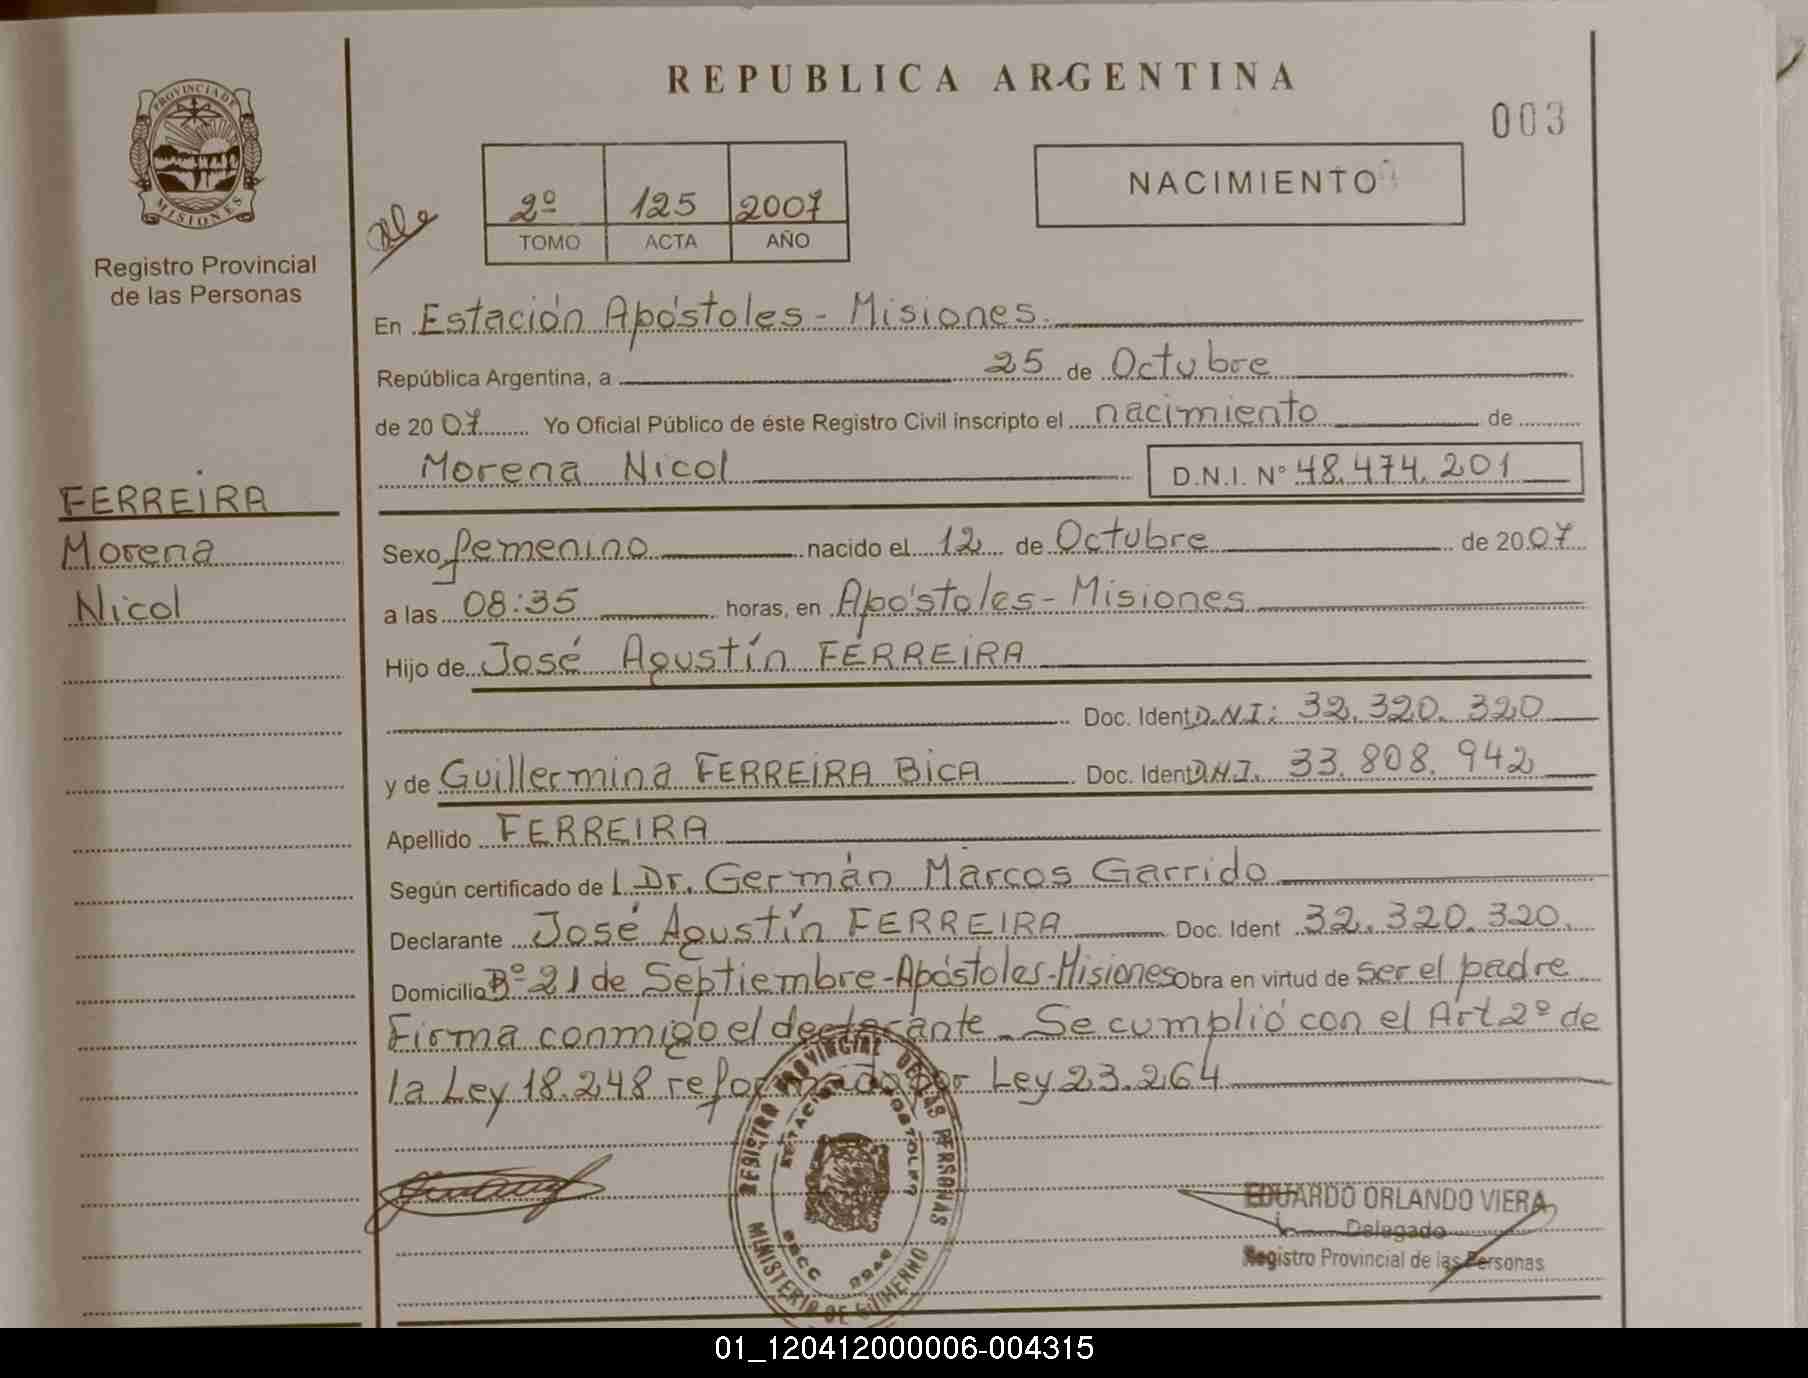 REPUBLICA ARGENTINA
003
PROVINCIA DE
MISIONES
Registro Provincial
de las Personas
2º 125 2007
TOMO ACTA AÑO
NACIMIENTO
En Estación Apóstoles - Misiones.
República Argentina, a 25 de Octubre
de 2007 Yo Oficial Público de éste Registro Civil inscripto el nacimiento de
Morena Nicol D.N.I. Nº 48.474.201
FERREIRA
Morena
Nicol
Sexo femenino nacido el 12 de Octubre de 2007
a las 08:35 horas, en Apóstoles - Misiones
Hijo de José Agustín FERREIRA
Doc. Ident D.N.I: 32.320.320
y de Guillermina FERREIRA BiCA Doc. Ident D.N.I. 33.808.942
Apellido FERREIRA
Según certificado de l Dr. Germán Marcos Garrido
Declarante José Agustín FERREIRA Doc. Ident 32.320.320.
Domicilio Bº 21 de Septiembre - Apóstoles - Misiones Obra en virtud de ser el padre
Firma conmigo el declarante. Se cumplió con el Art 2º de
la Ley 18.248 reformado por Ley 23.264
REGISTRO PROVINCIAL DE LAS PERSONAS
MINISTERIO DE GOBIERNO
EDUARDO ORLANDO VIERA
Delegado
Registro Provincial de las Personas
01_120412000006-004315